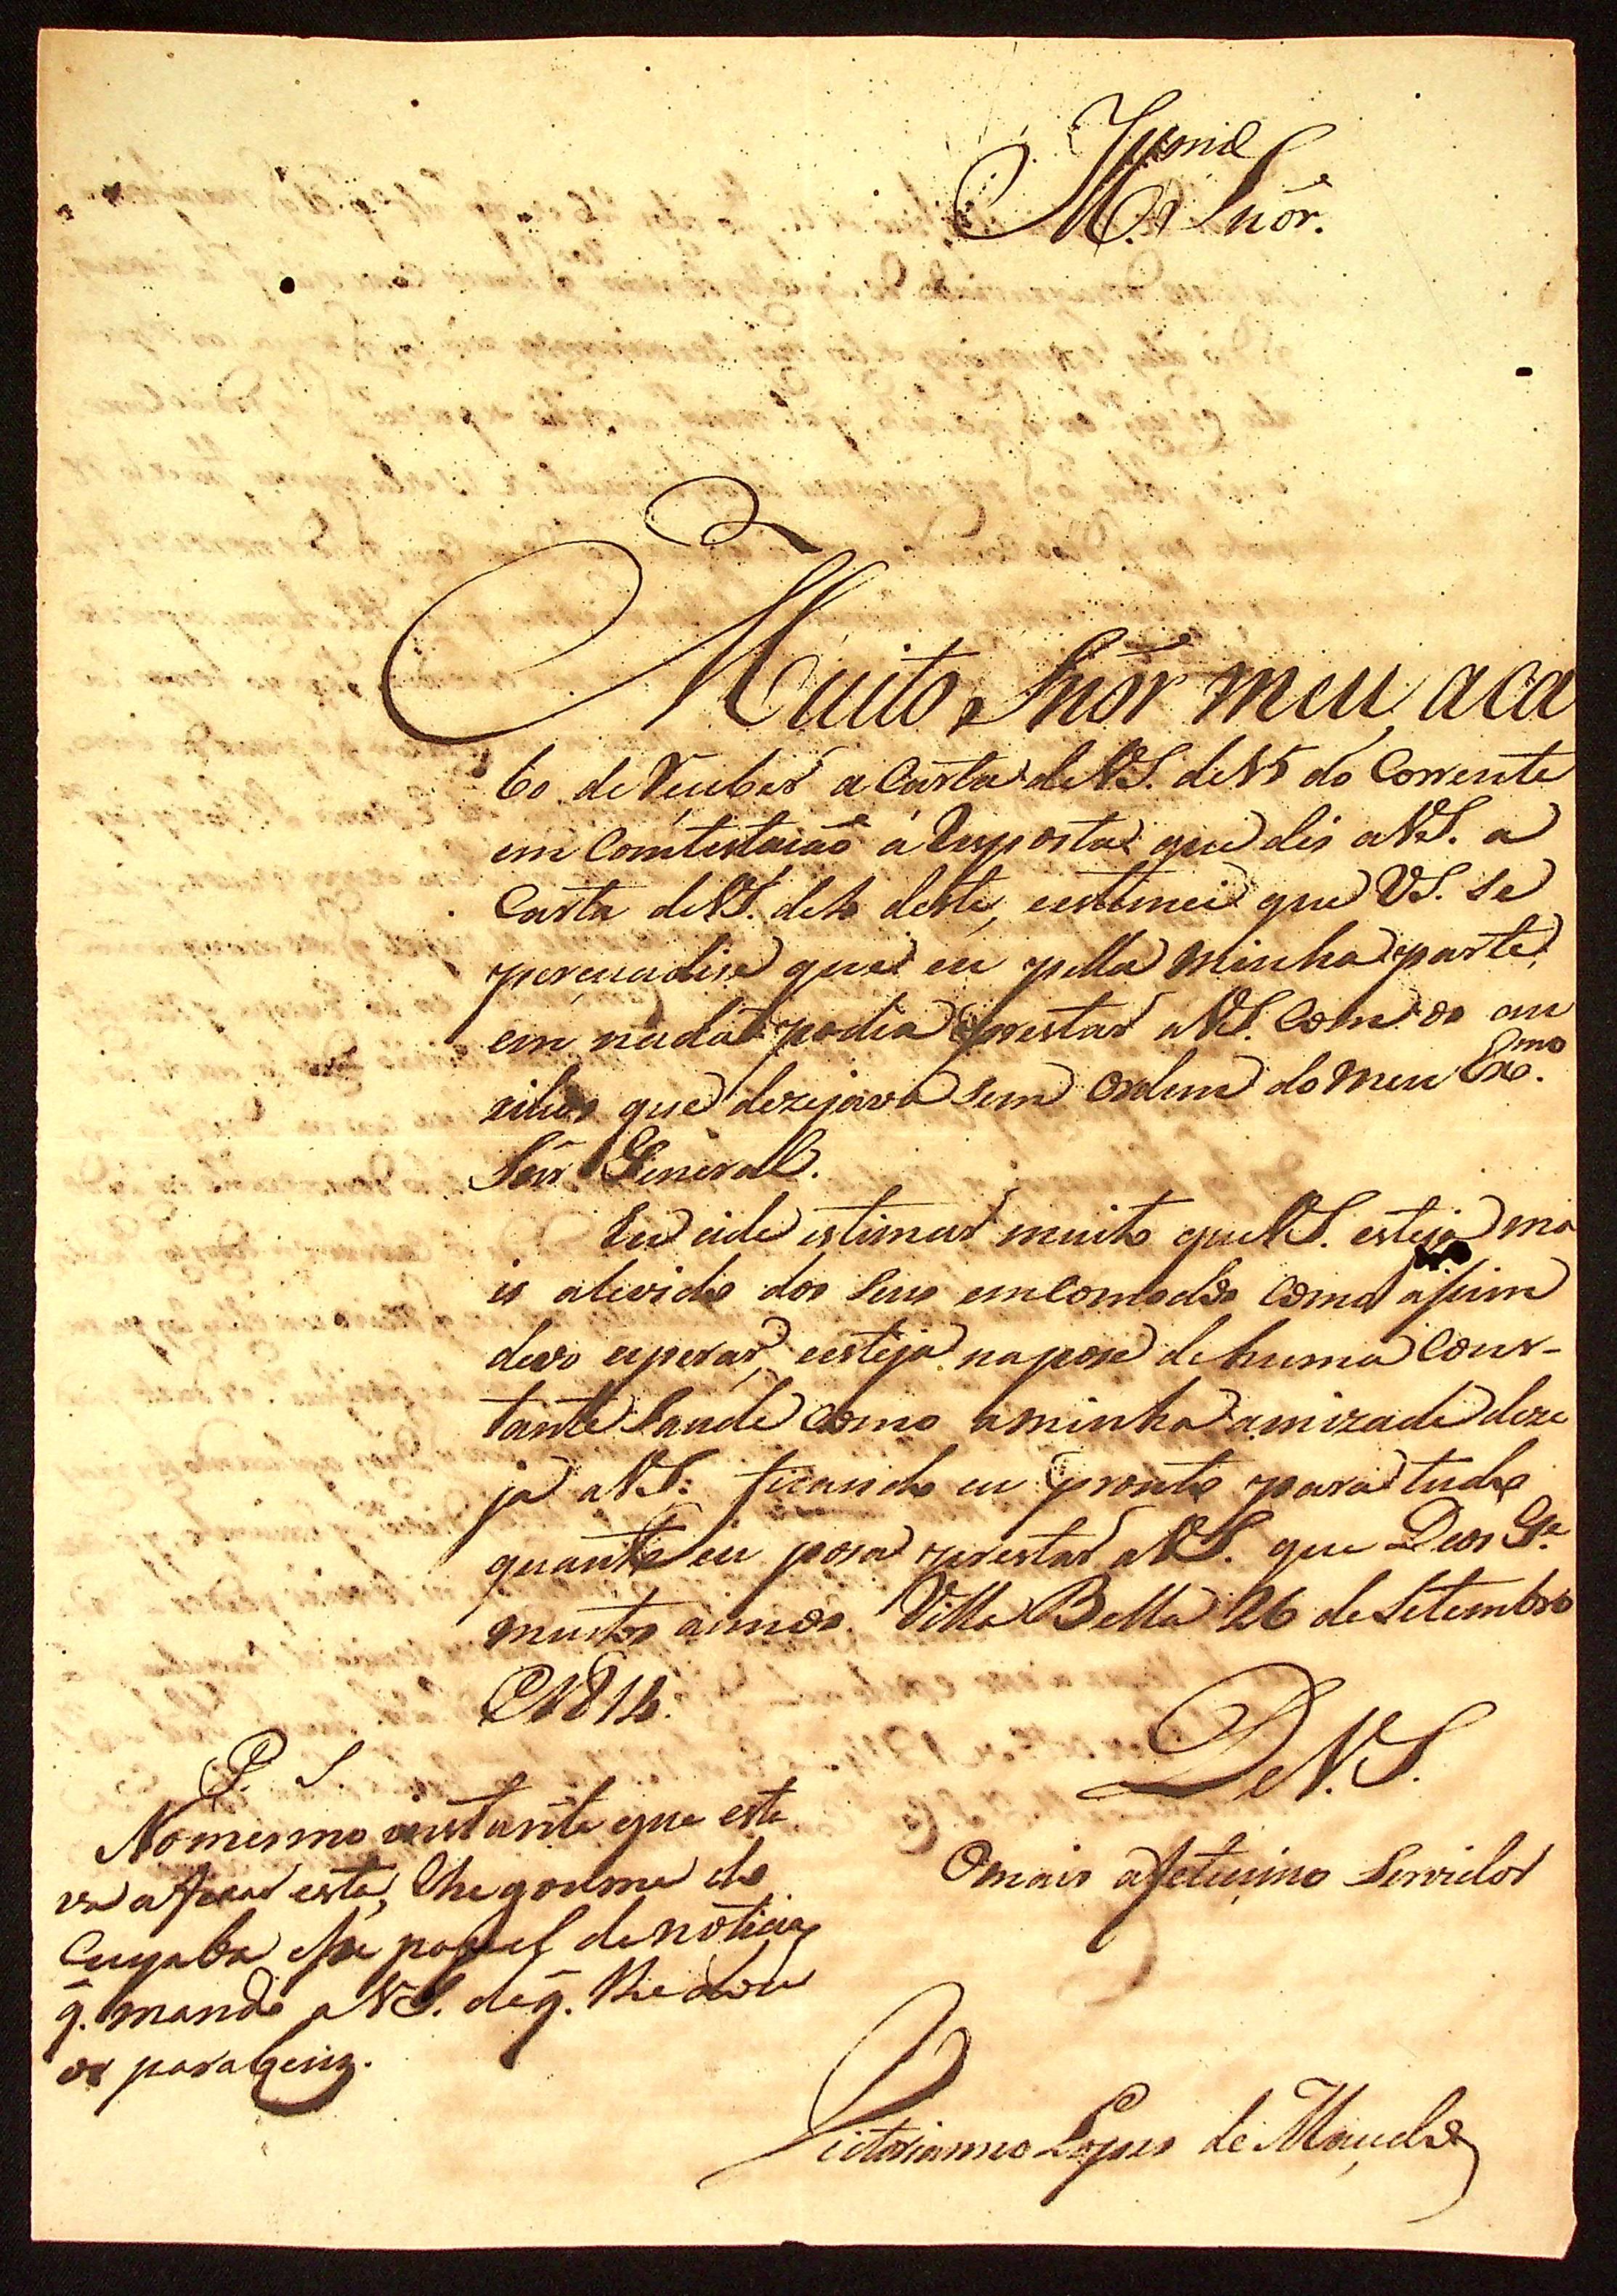 Illmo
M.r Snõr.
Muito Snõr meu, aca
bo de Reciber a Carta de VS. de 15 do Corrente
em Contestacaõ a Resposta que dis a VS. a
Carta de VS. de deste, estimei que VS. se
percuadise que eu pella minha parte,
em nada podia prestar a VS. com os au
xilios que dezejava sem ordem do meu Exmo.
Snr General.
Eu eide estimar muito que VS. esteja ma
is alevido dos seus emcomodos como asim
devo esperar, esteja na pose de huma cons-
tante saude como a minha amizade deze
ja a VS. ficando eu pronto para tudo
quanto eu posa prestar a VS. que Deos G.e
muitos annos. Villa Bella 26 de Setembro
1814.
De V.S.
O mais afetucimo Servidor
Victorianno Lopes de Maçedo
P. S
No mesmo instante que esta
va a fexar esta, Chegoume do
Cuyaba ese papel de noticias
q. mando a VS. de q. lhe dou
os parabeins.